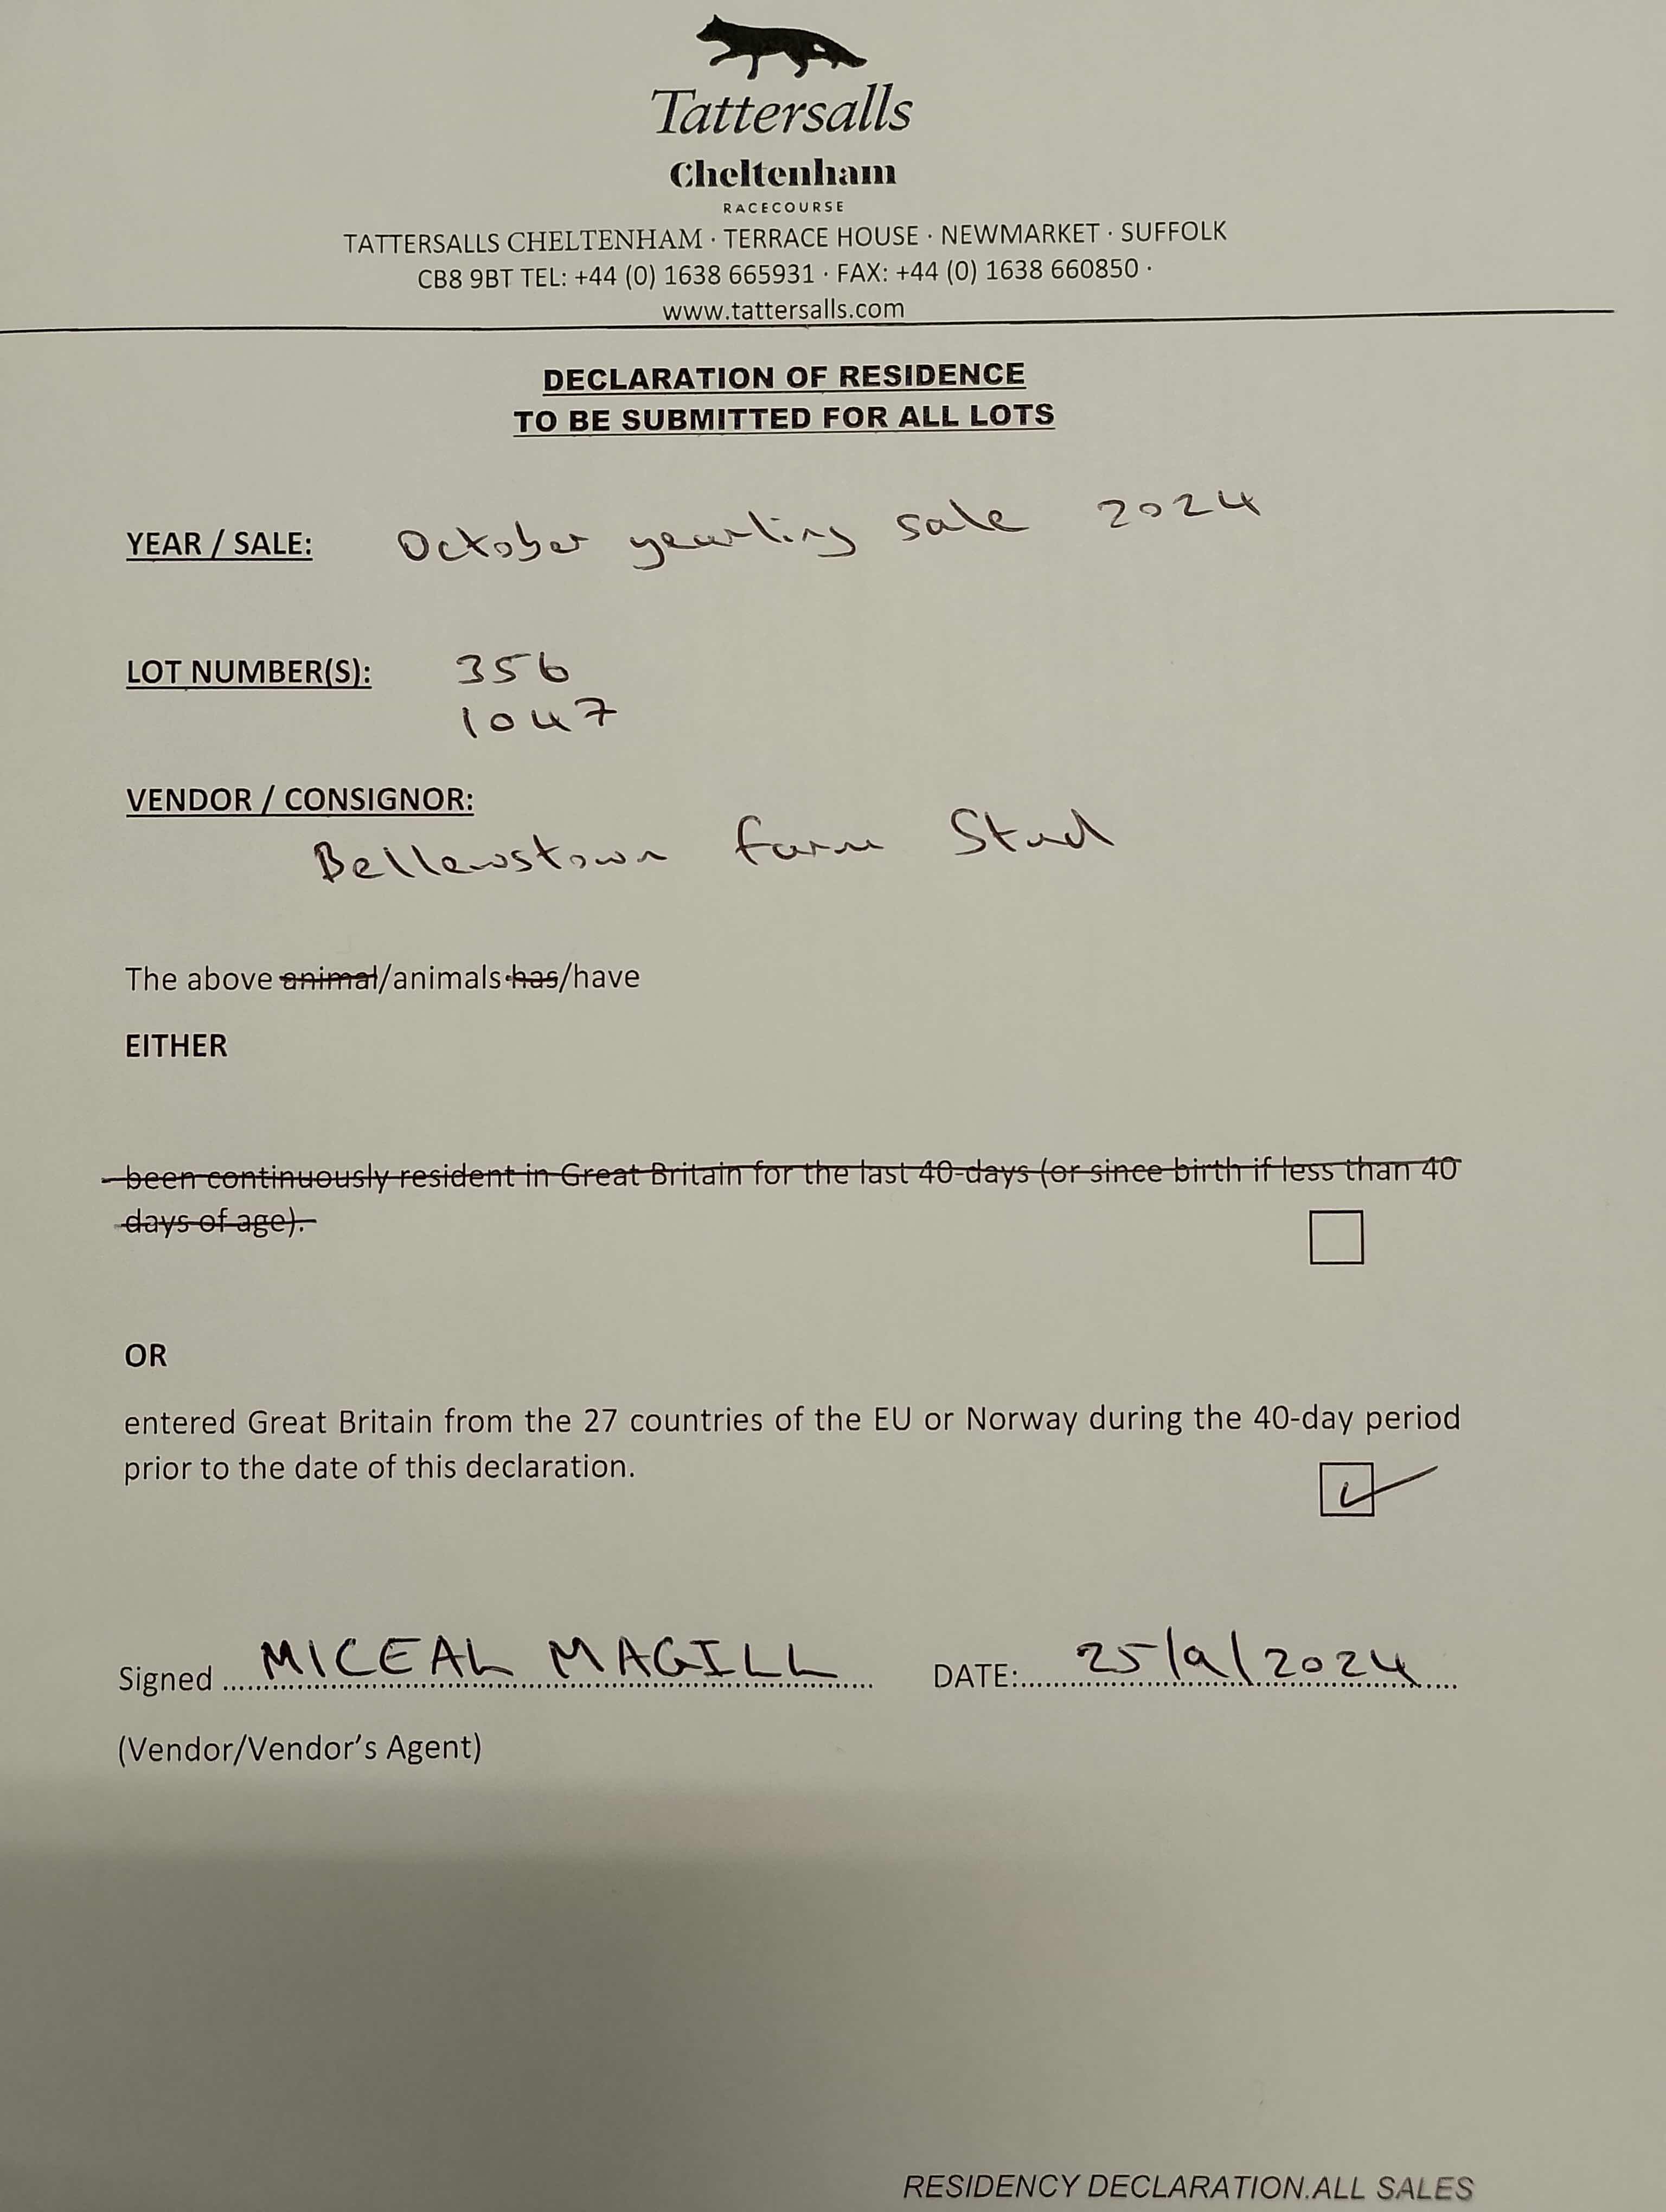 Tattersalls
Cheltenham
RACECOURSE
TATTERSALLS CHELTENHAM · TERRACE HOUSE · NEWMARKET · SUFFOLK
CB8 9BT TEL: +44 (0) 1638 665931 · FAX: +44 (0) 1638 660850 ·
www.tattersalls.com
DECLARATION OF RESIDENCE
TO BE SUBMITTED FOR ALL LOTS
YEAR / SALE: October yearling sale 2024
LOT NUMBER(S): 356
1047
VENDOR / CONSIGNOR:
Bellewstown farm Stud
The above animal/animals has/have
EITHER
been continuously resident in Great Britain for the last 40-days (or since birth if less than 40
days of age).
OR
entered Great Britain from the 27 countries of the EU or Norway during the 40-day period
prior to the date of this declaration.
Signed MICEAL MAGILL DATE: 25/9/2024
(Vendor/Vendor's Agent)
RESIDENCY DECLARATION.ALL SALES